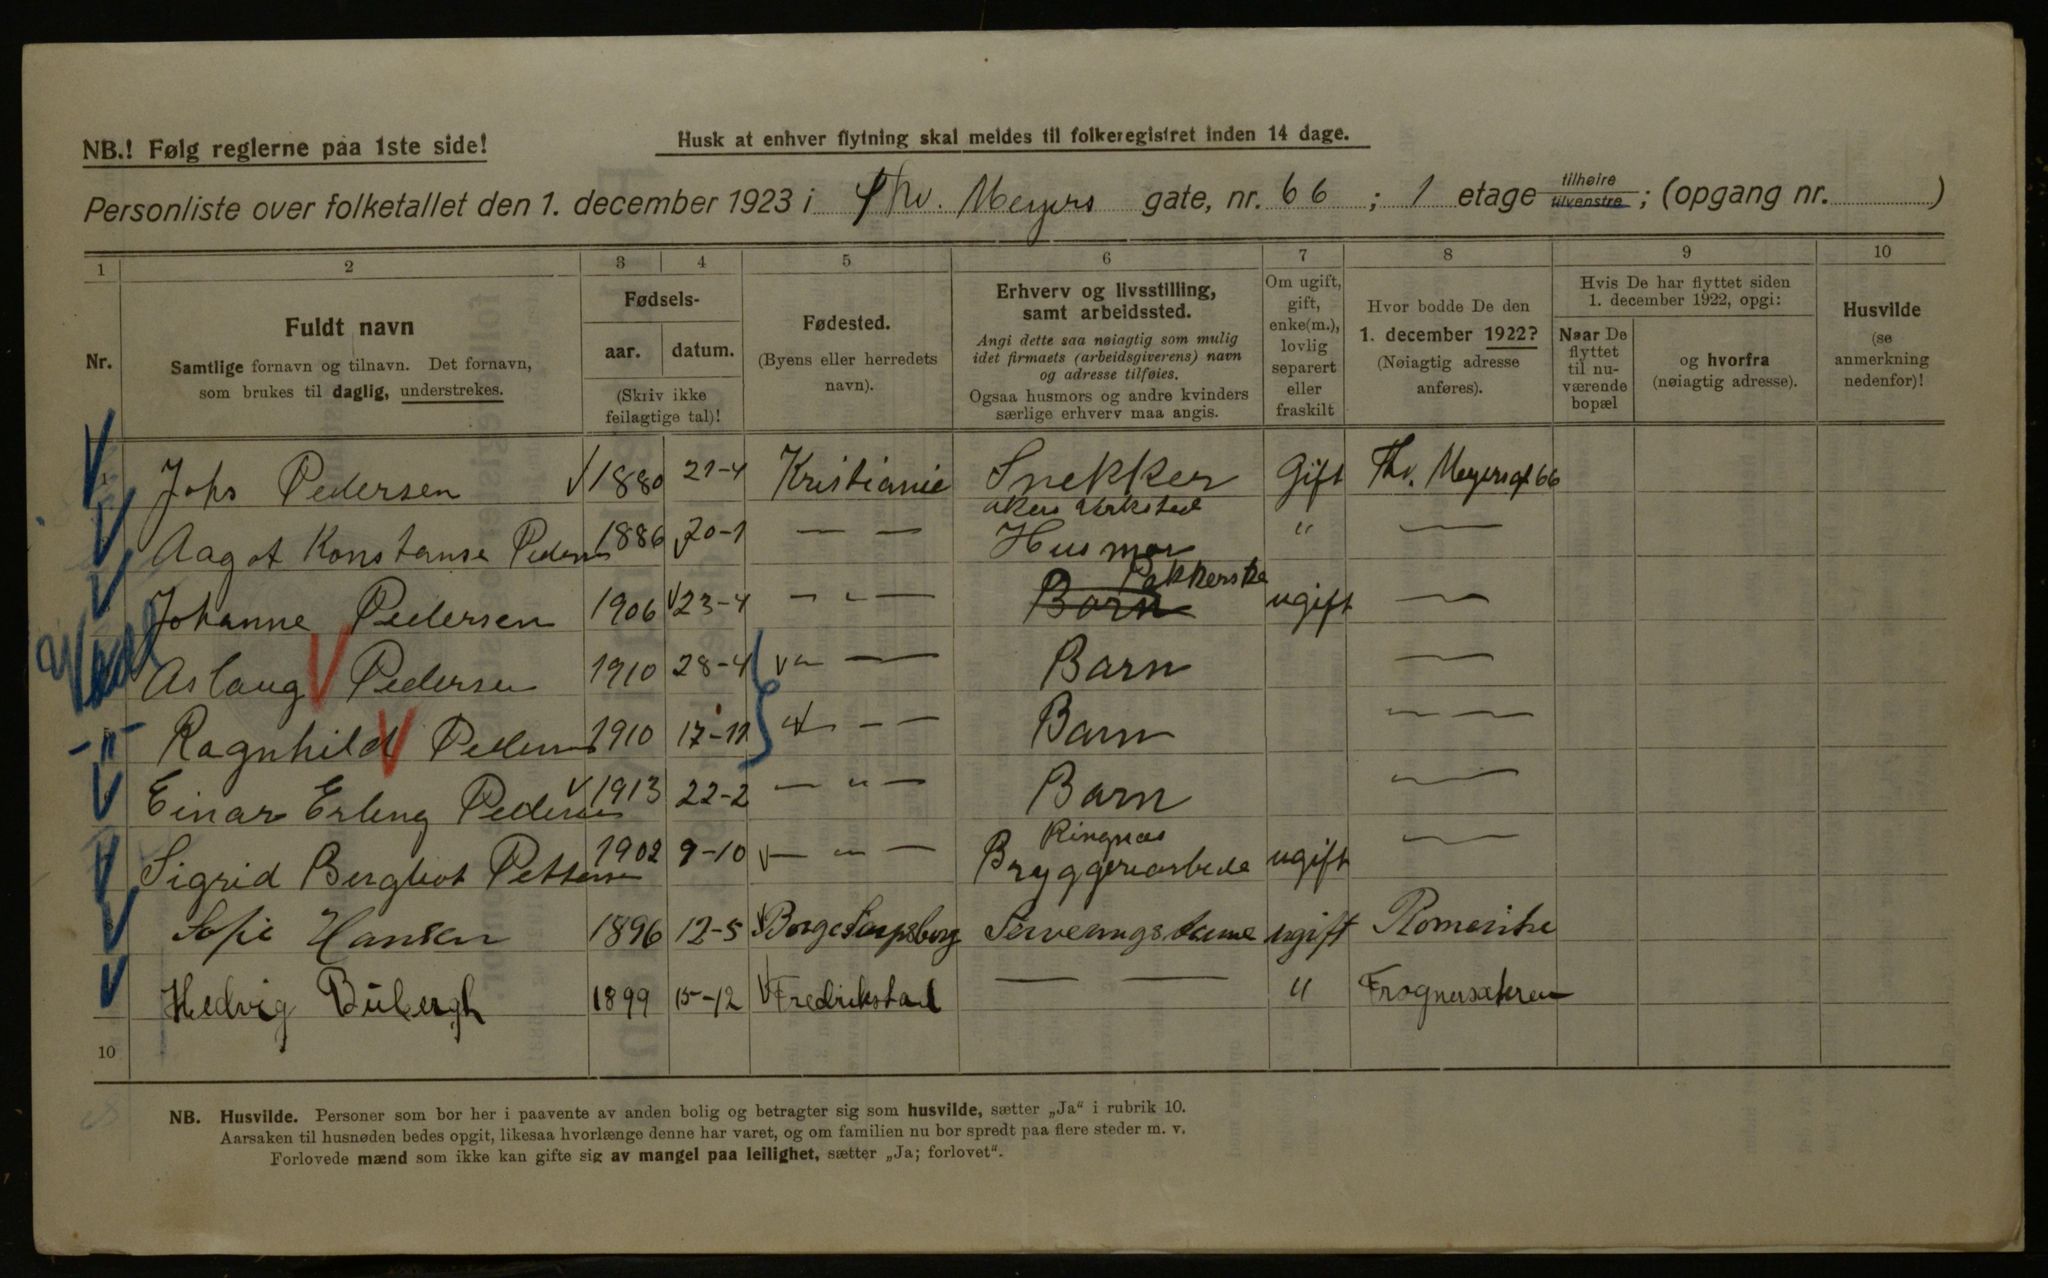 NB.! Følg reglerne paa 1ste side!
Husk at enhver flytning skal meldes til folkeregistret inden 14 dage.
Personliste over folketallet den 1. december 1923 i Thv. Meyers gate, nr. 66 ; 1 etage tilhøire tilvenstre ; (opgang nr. )
1 2 3 4 5 6 7 8 9 10
Nr.
Fuldt navn
Samtlige fornavn og tilnavn. Det fornavn,
som brukes til daglig, understrekes.
Fødsels-
aar. datum.
(Skriv ikke
feilagtige tal)!
Fødested.
(Byens eller herredets
navn).
Erhverv og livsstilling,
samt arbeidssted.
Angi dette saa nøiagtig som mulig
idet firmaets (arbeidsgiverens) navn
og adresse tilføies.
Ogsaa husmors og andre kvinders
særlige erhverv maa angis.
Om ugift,
gift,
enke(m.),
lovlig
separert
eller
fraskilt
Hvor bodde De den
1. december 1922?
(Nøiagtig adresse
anføres).
Hvis De har flyttet siden
1. december 1922, opgi:
Naar De
flyttet
til nu-
værende
bopæl
og hvorfra
(nøiagtig adresse).
Husvilde
(se
anmerkning
nedenfor)!
Johs Pedersen 1880 21-4 Kristiania Snekker Gift Thv. Meyersgt 66
Akers Verksted
Aagot Konstanse Pedersen 1886 20-1 — — Husmor " —
Pakkerske
Johanne Pedersen 1906 23-4 — " — Barn ugift —
Aslaug Pedersen 1910 28-4 " — Barn —
Ragnhild Pedersen 1910 17-11 " — — Barn — —
Einar Erling Pedersen 1913 22-2 — " — Barn —
Ringnæs
Sigrid Bergliot Pettersen 1902 9-10 — " — Bryggeriarbeide ugift —
Sofie Hansen 1896 12-5 Borge Sarpsborg Serveringsdame ugift Romerike
Hedvig 1899 15-12 Fredrikstad — — " Frognersæteren
10
NB. Husvilde. Personer som bor her i paavente av anden bolig og betragter sig som husvilde, sætter „Ja" i rubrik 10.
Aarsaken til husnøden bedes opgit, likesaa hvorlænge denne har varet, og om familien nu bor spredt paa flere steder m. v.
Forlovede mænd som ikke kan gifte sig av mangel paa leilighet, sætter „Ja; forlovet".